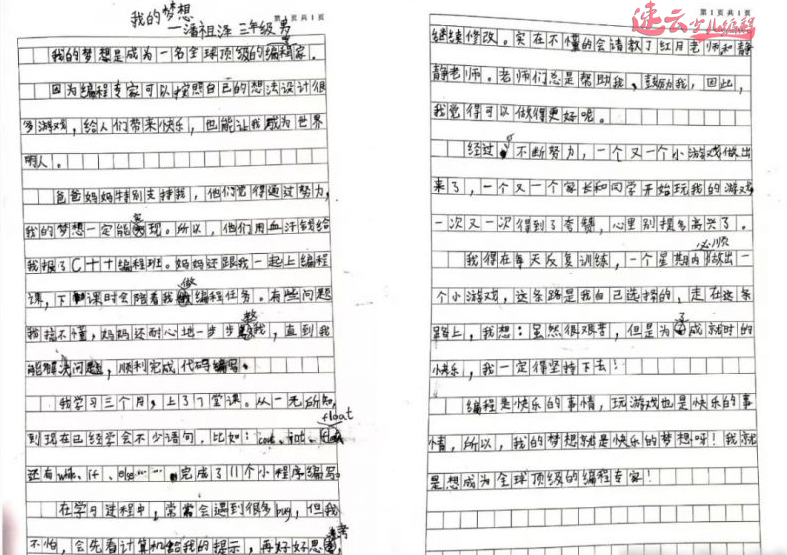 我的梦想
第1页共1页
—潘祖泽 三年级 男
我的梦想是成为一名全球顶级的编程家。
因为编程专家可以按照自己的想法设计很
多游戏，给人们带来快乐，也能让我成为世界
明人。
爸爸妈妈特别支持我，他们觉得通过努力，
我的梦想一定能实现。所以，他们用血汗钱给
我报了C++编程班。妈妈还跟我一起上编程
课，下课时会陪着我做编程任务。有些问题
我搞不懂，妈妈还耐心地一步步教我，直到我
能解决问题，顺利完成代码编写。
我学习三个月，上了17堂课。从一无所知，
到现在已经学会不少语句，比如：cout、int、float
还有while、if、else……，完成了11个小程序编写。
在学习过程中，常常会遇到很多bug，但我
不怕，会先看计算机给我的提示，再好好思考，
速云少儿编程
第1页共1页
继续修改。实在不懂的会请教了红月老师和静
静老师。老师们总是帮助我、鼓励我，因此，
我觉得可以做得更好呢。
经过不断努力，一个又一个小游戏做出
来了，一个又一个家长和同学开始玩我的游戏
一次又一次得到了夸赞，心里别提多高兴了。
我得在每天反复训练，一个星期内必须做出一
个小游戏，这条路是我自己选择的，走在这条
路上，我想：虽然很艰苦，但是为了成就时的
快乐，我一定得坚持下去！
编程是快乐的事情，玩游戏也是快乐的事
情，所以，我的梦想就是快乐的梦想呀！我就
是想成为全球顶级的编程专家！